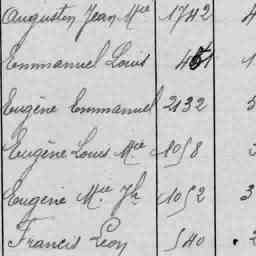 Augustin Jean Mie 1742 4
Emmanuel Louis 451 1
Eugène Emmanuel 2132 5
Eugène Louis Mie 1058
Eugène Mie Jh 1052 3
Francis Léon 540 . 2